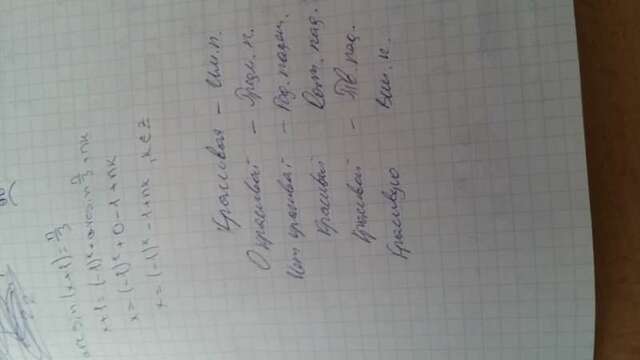 arcsin(x+1)=π/3
x+1=(-1)^k·arcsin π/3+πk
x=(-1)^k+0-1+πk
x=(-1)^k-1+πk, k∈z
Красивая – Им.п.
О красивой – Предл. п.
Нет красивой – Род. падеж.
Красивой Дат. пад.
Красивой – Тв. пад.
Красивую Вин. п.